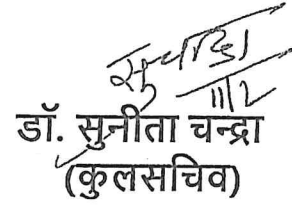 डॉ. सुनीता चन्द्रा
(कुलसचिव)